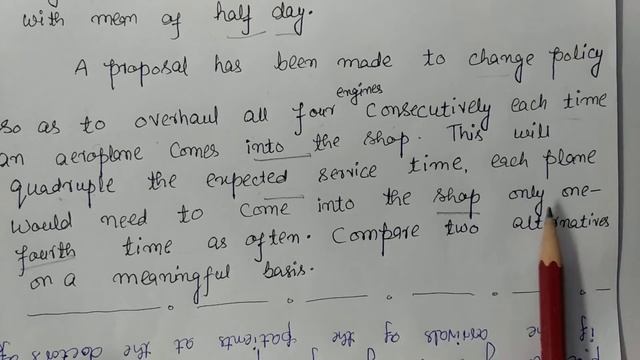 with mean of half day.
A proposal has been made to change policy
so as to overhaul all four engines Consecutively each time
an aeroplane comes into the shop. This will
quadruple the expected service time, each plane
Would need to come into the shop only one-
fourth time as often. Compare two alternatives
on a meaningful basis.
if the arrivals of the patients at the doctors